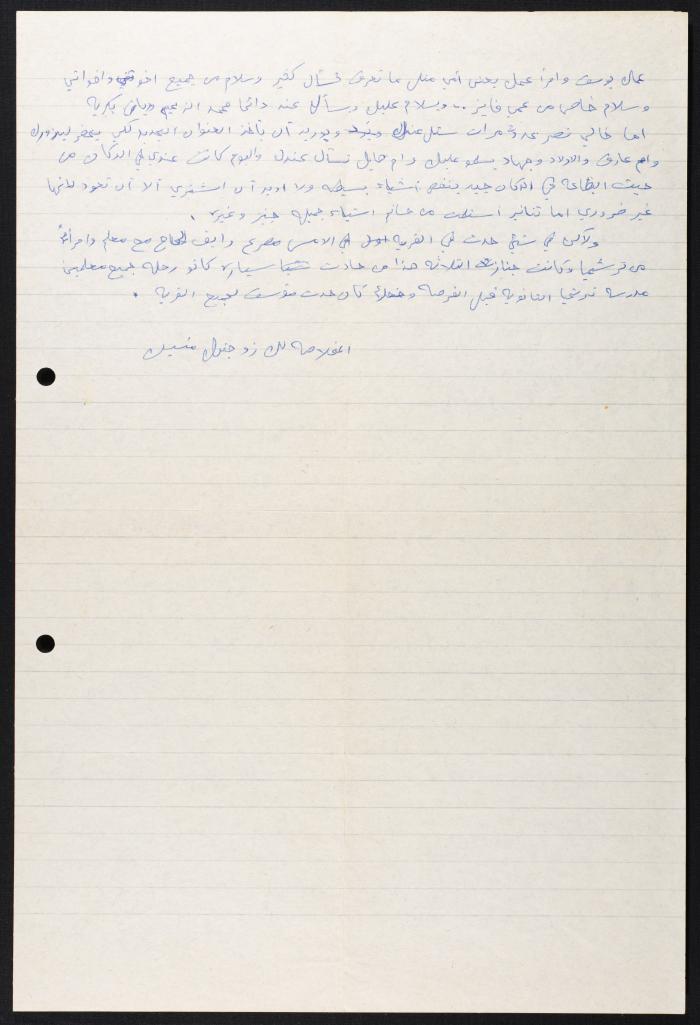 عمك يوسف وامرأ عمك يعني أمي مثل ما تعرف تسأل كثير وسلام من جميع اخوتي واخواتي
وسلام خاص من عمي فايز .. ويسلام عليك ويسأل عنك دائما محمد
اما خالي نصر عدة مرات سئل عنك ويريد آن يأخذ العنوان الجديد لكي يحضر ليزورك
وام عارف والاولاد وجهاد يسلمو عليك وام خايل تسأل عنك واليوم كانت عندي في الدكان من
حيث البظاعة في الدكان جيد ينقص أشياء بسيطه ولا اريد آن اشتري آلا آن تعود لانها
غير ضروري اما تنانير استلمت من غانم اشياء جميله جنز وغيره .
ولاكن في شئ حدث في القرية في الامس مصرع رايف الحاج مع معلم وامرأة
من ترشيحا وكانت جنازت الثلاثه هذا من حادث سياره كانو رحله جميع معلمين
مدرسة ترشيحا الثانوية قبل الفرصه كان حدث مؤسف لجميع القريه .
المخلاصه لك زوجتك